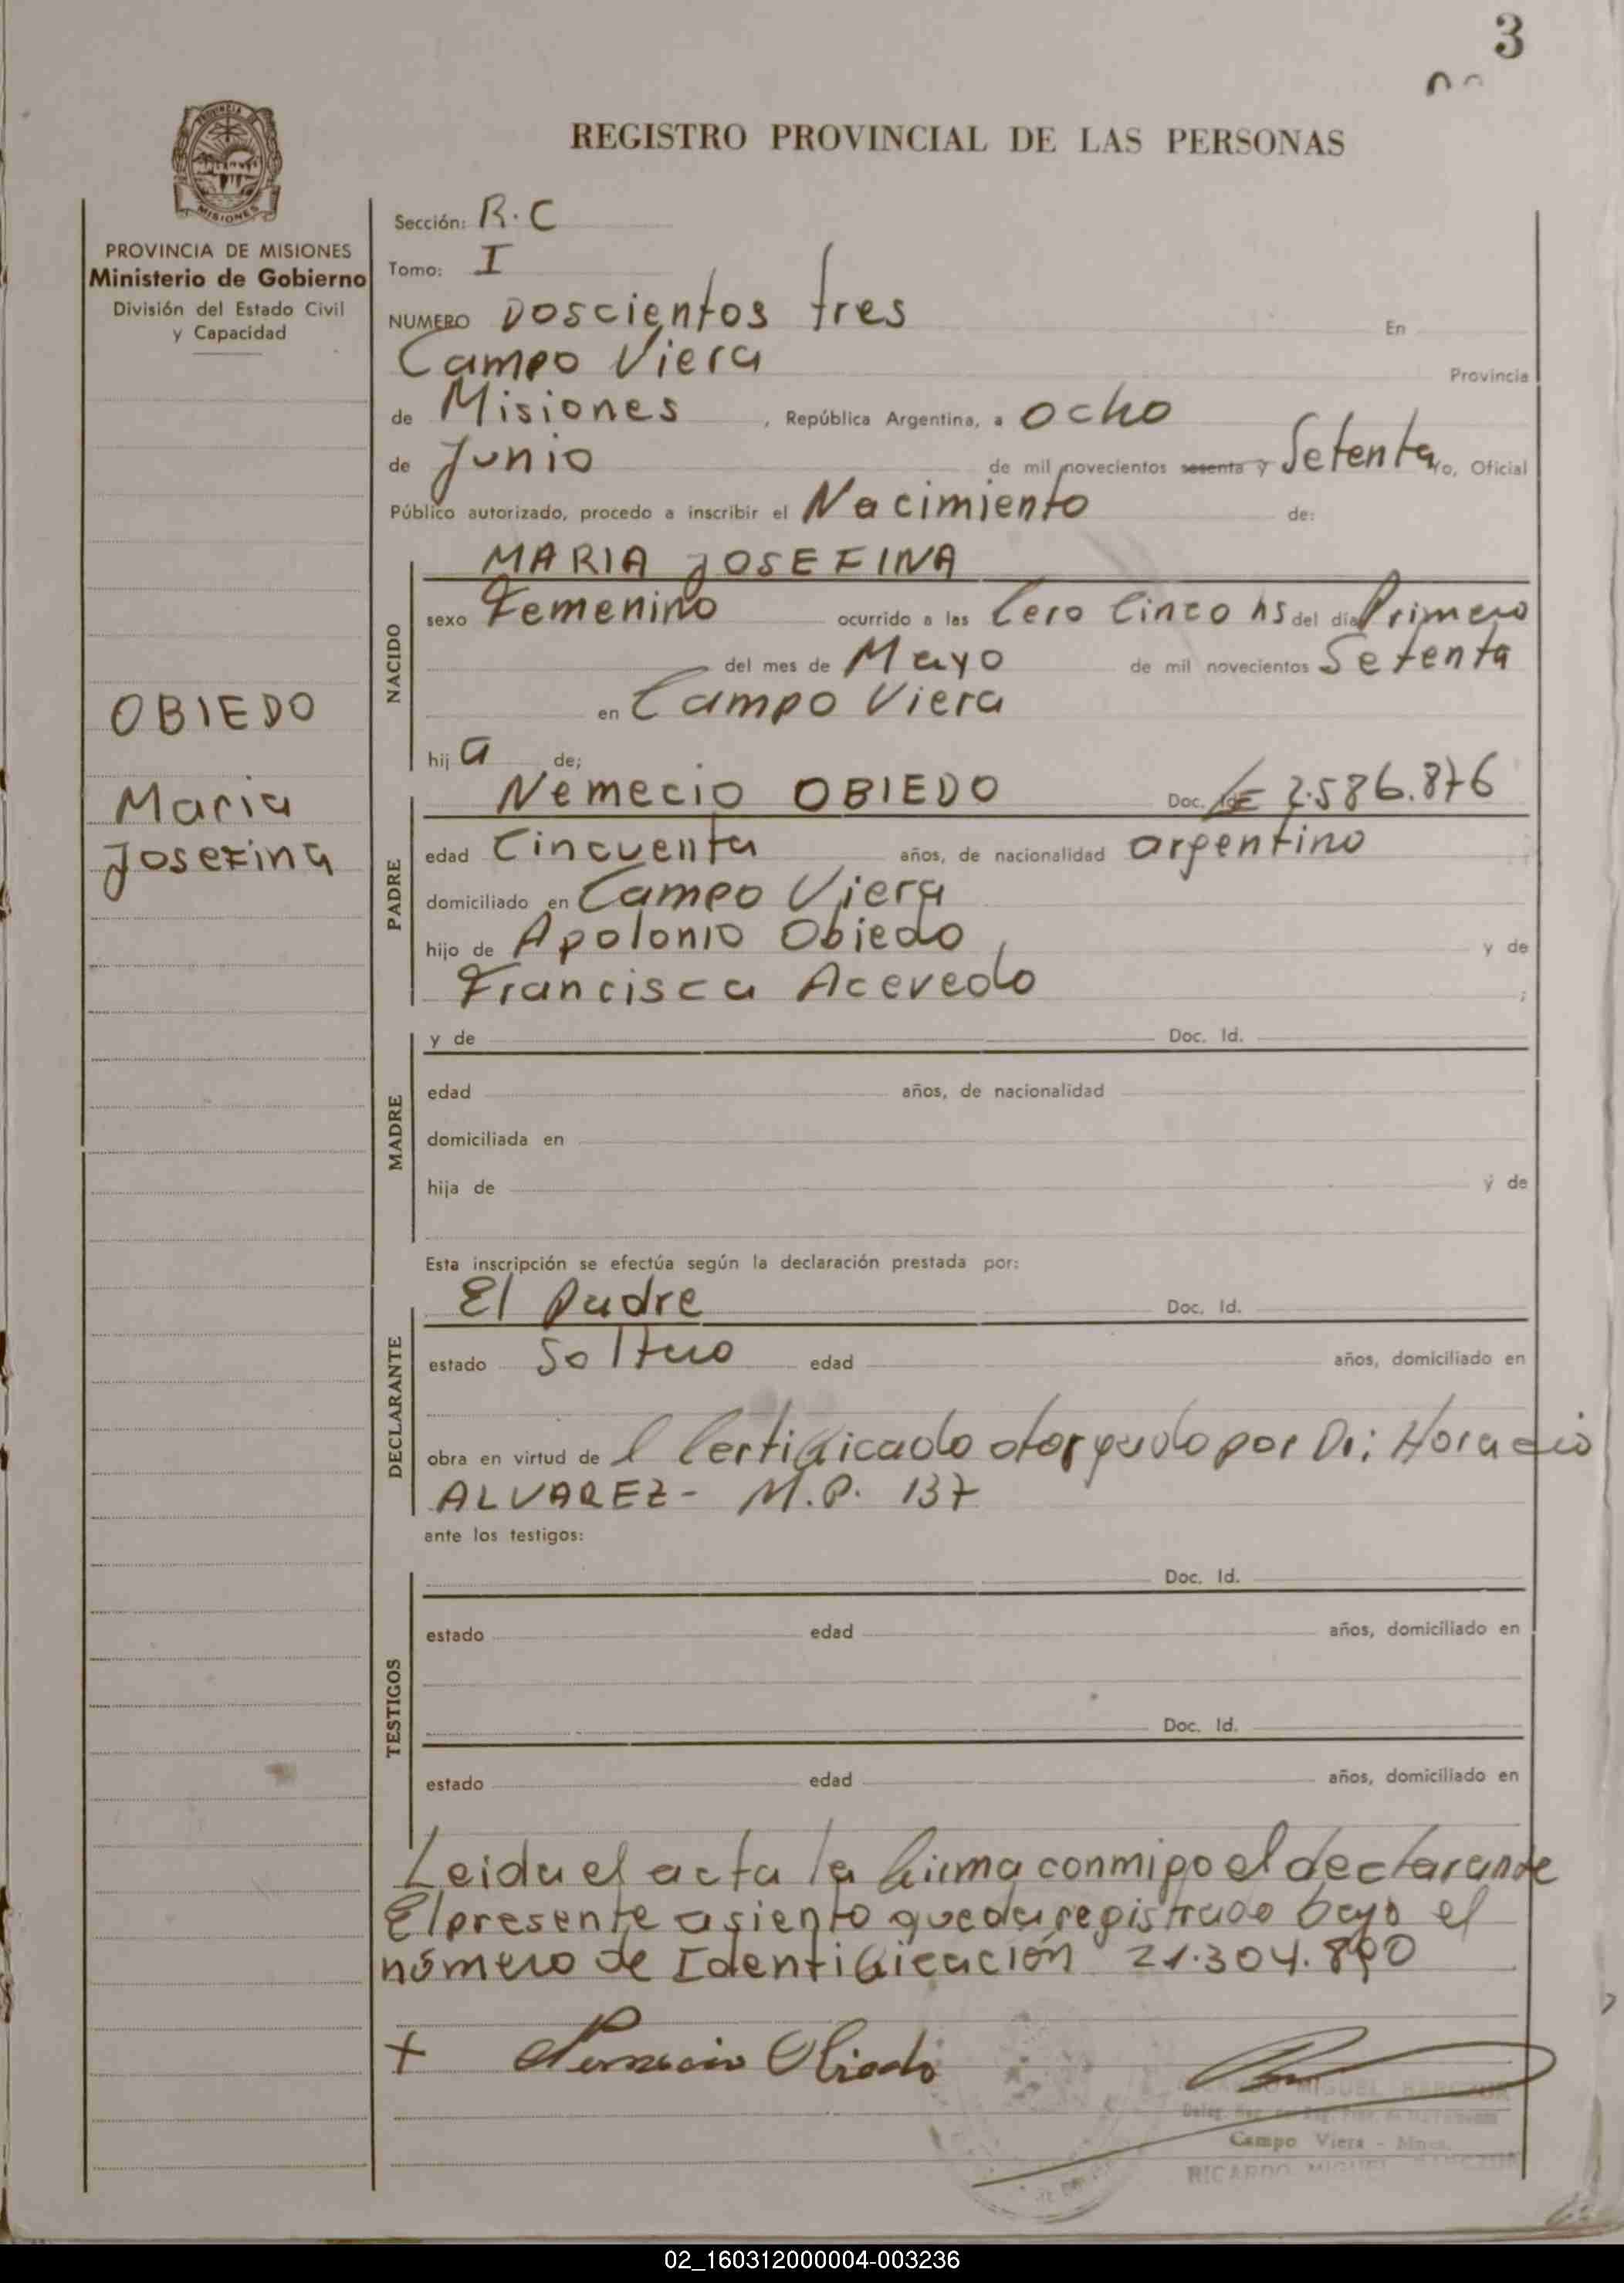 3
REGISTRO PROVINCIAL DE LAS PERSONAS
PROVINCIA
MISIONES
PROVINCIA DE MISIONES
Ministerio de Gobierno
División del Estado Civil
y Capacidad
OBIEDO
Maria
Josefina
Sección: R.C
Tomo: I
NUMERO Doscientos tres En
Campo Viera Provincia
de Misiones, República Argentina, a ocho
de Junio de mil novecientos sesenta y Setenta yo, Oficial
Público autorizado, procedo a inscribir el Nacimiento de:
NACIDO
MARIA JOSEFINA
sexo Femenino ocurrido a las Cero Cinco hs del día Primero
del mes de Mayo de mil novecientos Setenta
en Campo Viera
hija de;
PADRE
Nemecio OBIEDO Doc. LE 2.586.876
edad Cincuenta años, de nacionalidad argentino
domiciliado en Campo Viera
hijo de Apolonio Obiedo y de
Francisca Acevedo ;
MADRE
y de Doc. Id.
edad años, de nacionalidad
domiciliada en
hija de y de
Esta inscripción se efectúa según la declaración prestada por:
DECLARANTE
El Padre Doc. Id.
estado Soltero edad años, domiciliado en
obra en virtud de l Certificado otorgado por Dr; Horacio
ALVAREZ- M.P. 137
ante los testigos:
TESTIGOS
Doc. Id.
estado edad años, domiciliado en
Doc. Id.
estado edad años, domiciliado en
Leida el acta la firma conmigo el declarante
El presente asiento queda registrado bajo el
número de Identificación 21.304.890
+ Nemecio Obiedo
MIGUEL
Campo Viera - Mnes.
RICARDO MIGUEL
02_160312000004-003236